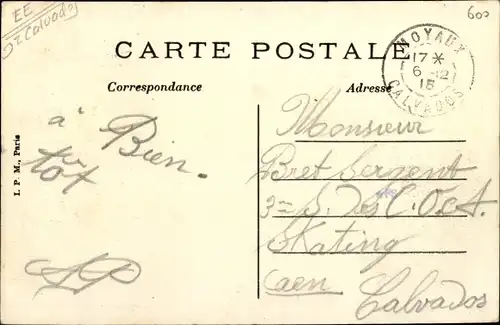 EE
Calvados
600
CARTE POSTALE
MOYAUX
17 *
6 -12
15
CALVADOS
Correspondance
Adresse
à Bien
tôt
Monsieur
Bret Sergent
3e S. des C.O.A.
Skating
Caen
Calvados
I. P. M., Paris